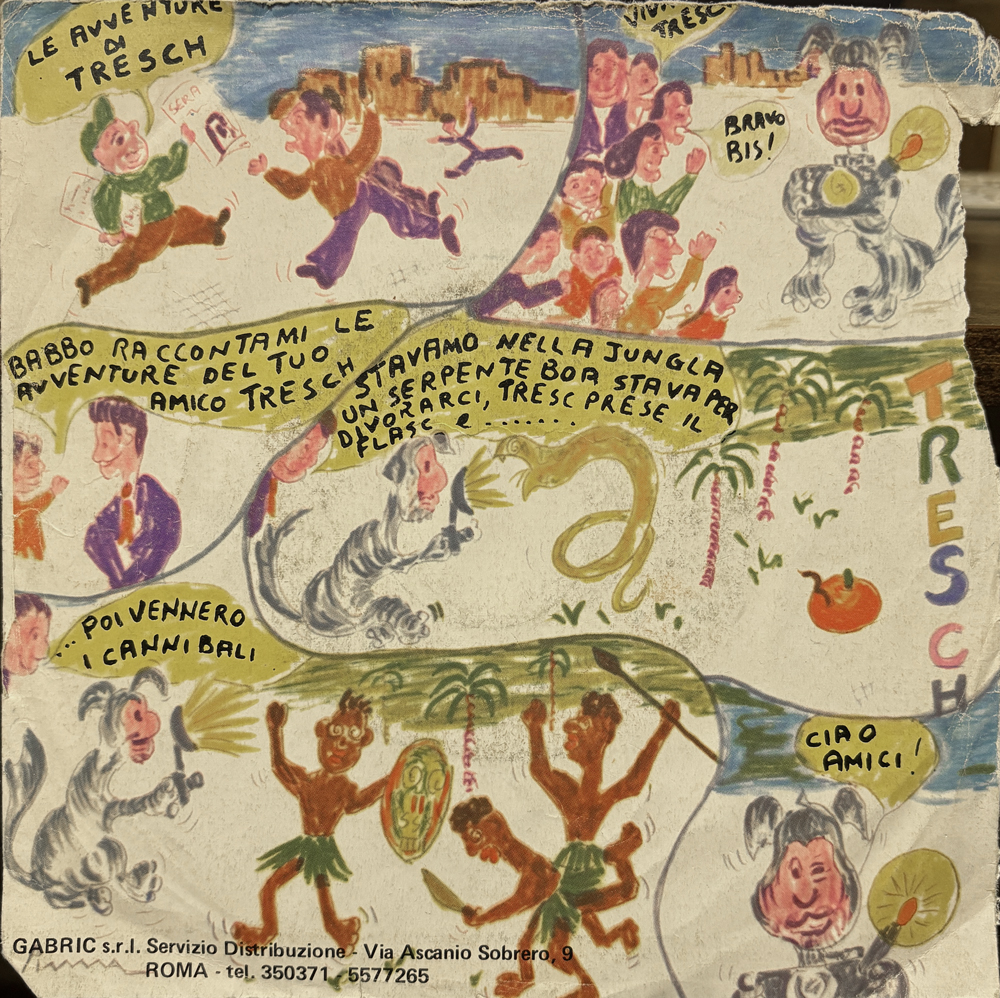 LE AVVENTURE
DI
TRESCH
SERA
VIVA
TRESC
BRAVO
BIS!
BABBO RACCONTAMI LE
AVVENTURE DEL TUO
AMICO TRESCH
STAVAMO NELLA JUNGLA
UN SERPENTE BOA STAVA PER
DIVORARCI, TRESC PRESE IL
FLASC e .......
TRESCH
...POI VENNERO
I CANNIBALI
CIAO
AMICI!
GABRIC s.r.l. Servizio Distribuzione - Via Ascanio Sobrero, 9
ROMA - tel. 350371 - 5577265